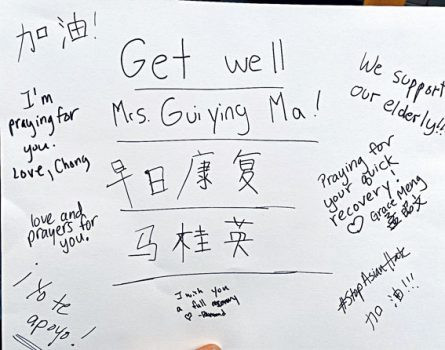 加油!
Get well
Mrs. Gui ying Ma!
早日康复
马桂英
I'm
praying for
you.
Love, Chong
love and
prayers for
you!
¡Yo te
apoyo!
I wish you
a full recovery
We support
our elderly!!
Praying for
your quick
recovery!
♡ Grace Meng
孟昭文
#StopAsianHate
加油!!!